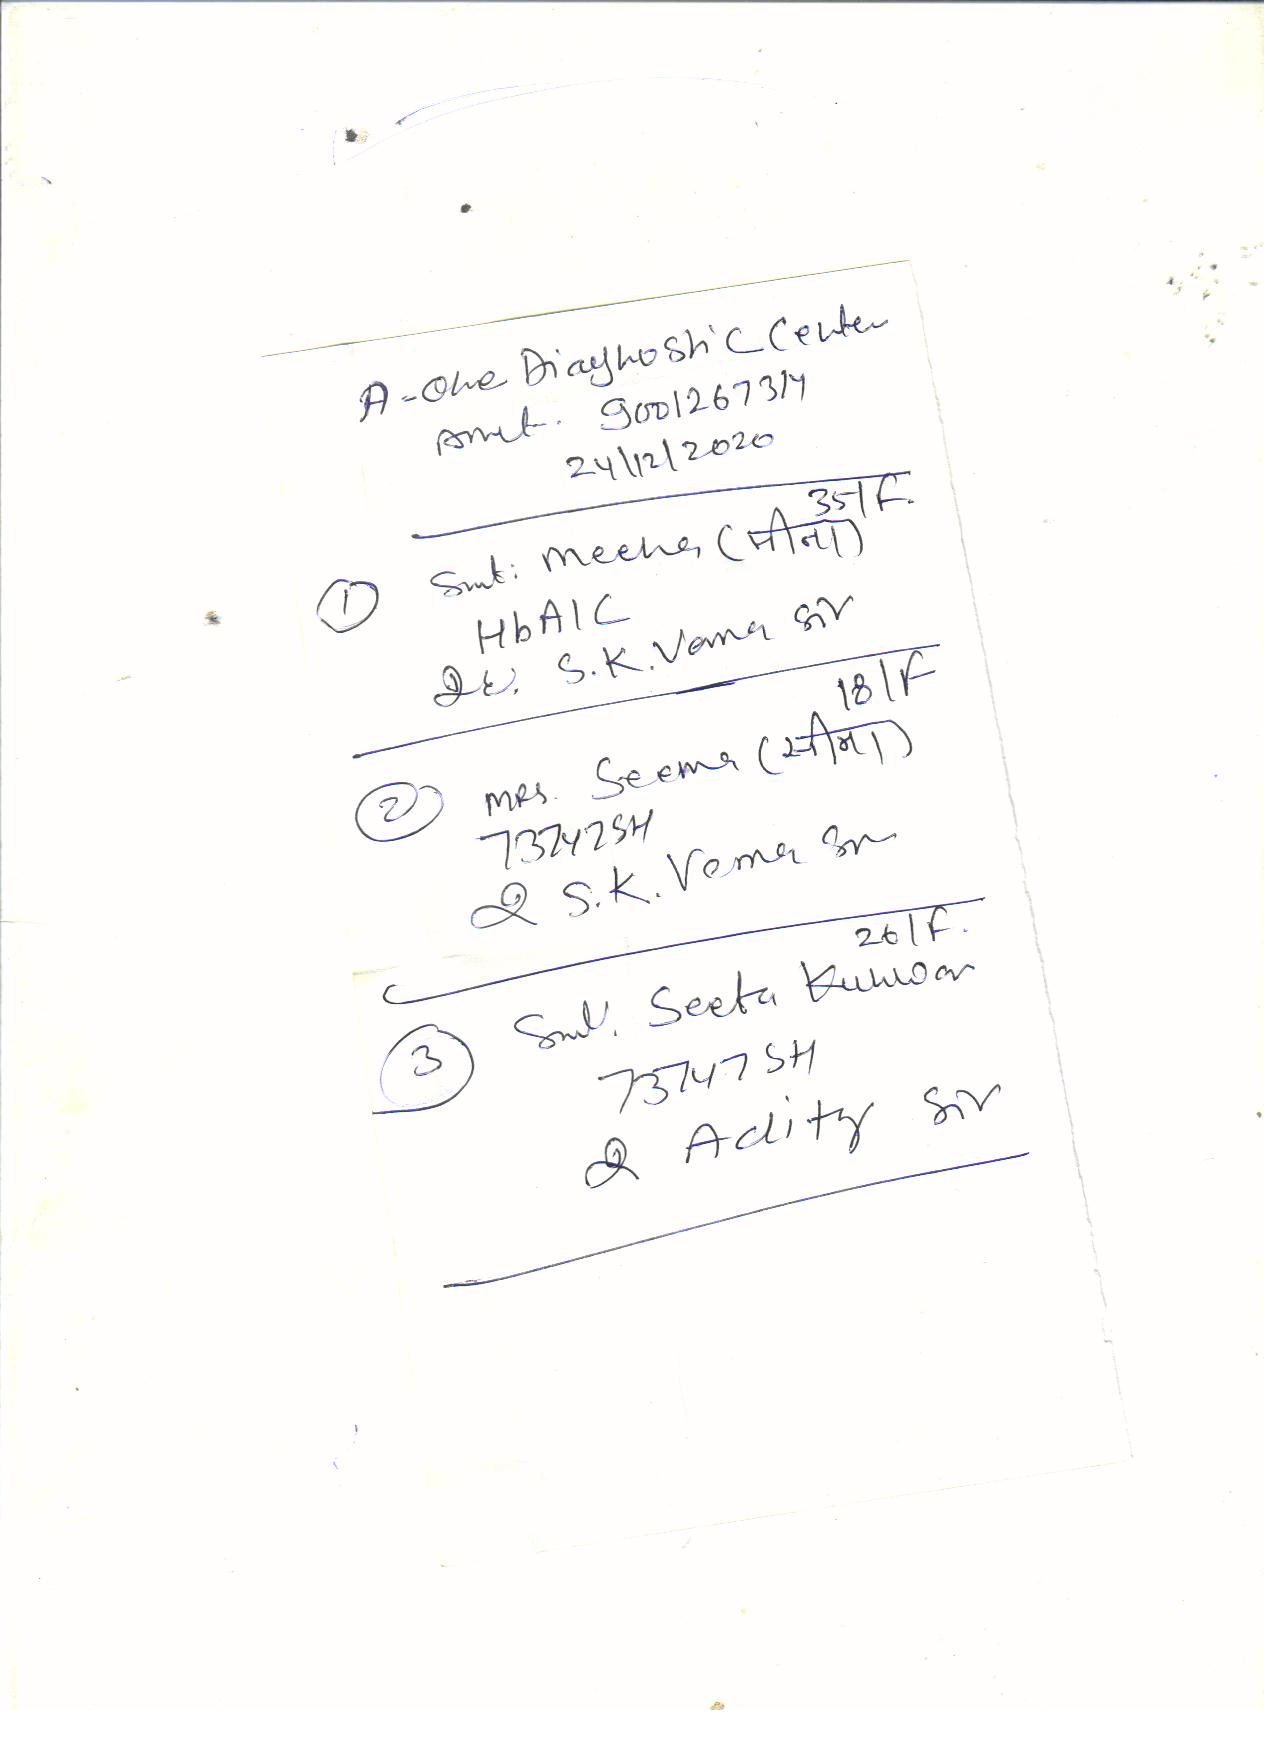 A-One Diagnostic Center
Amit. 9001267314
24/12/2020
35/F.
① Smt: Meena (मीना)
HbA1C
Dr. S.K. Verma Sir
18/F
② MRS. Seema (सीमा)
T3T4TSH
S.K. Verma Sir
26/F.
③ Smt. Seeta Kunwar
T3T4TSH
Adity Sir